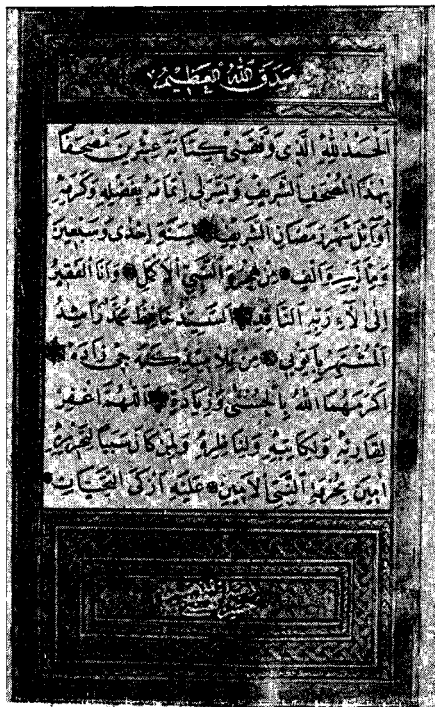 صدق الله العظيم
الحمد لله الذي وفقني كتابة عشرين مصحفا
بهذا المصحف الشريف ويسر لي إتمامه بفضله وكرمه
أوايل شهر رمضان الشريف لسنة إحدى وسبعين
ومأتين وألف من هجرة النبي الأكمل وأنا الفقير
إلى لآء ربه السيد حافظ محمد راشد
المشتهر بأيوبي من تلاميذ كبه جي زاده
أكرمهما الله بالحسنى وزيادة اللهم اغفر
لقاريه ولكاتبه ولناظره ولمن كان سببا لتحريره
امين بحرمة النبي الأمين عليه أزكى التحيات